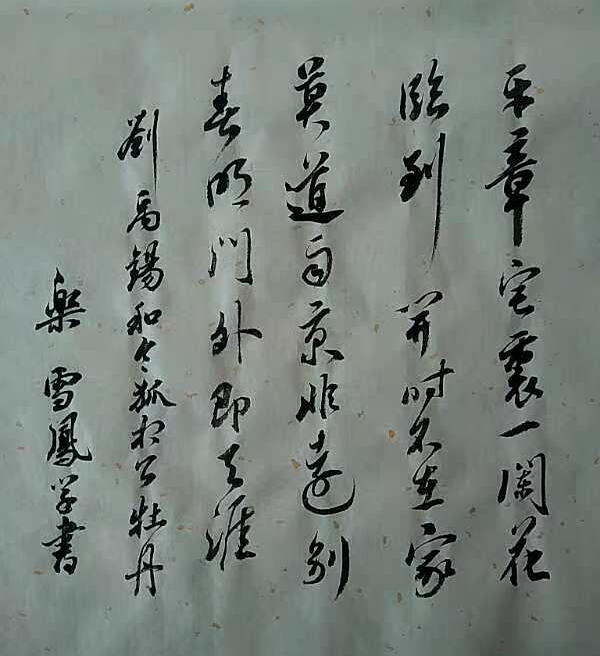 平章宅裏一闌花
臨到開時不在家
莫道兩京非遠別
春明門外即天涯
劉禹錫和令狐相公牡丹
樂雪鳳学書